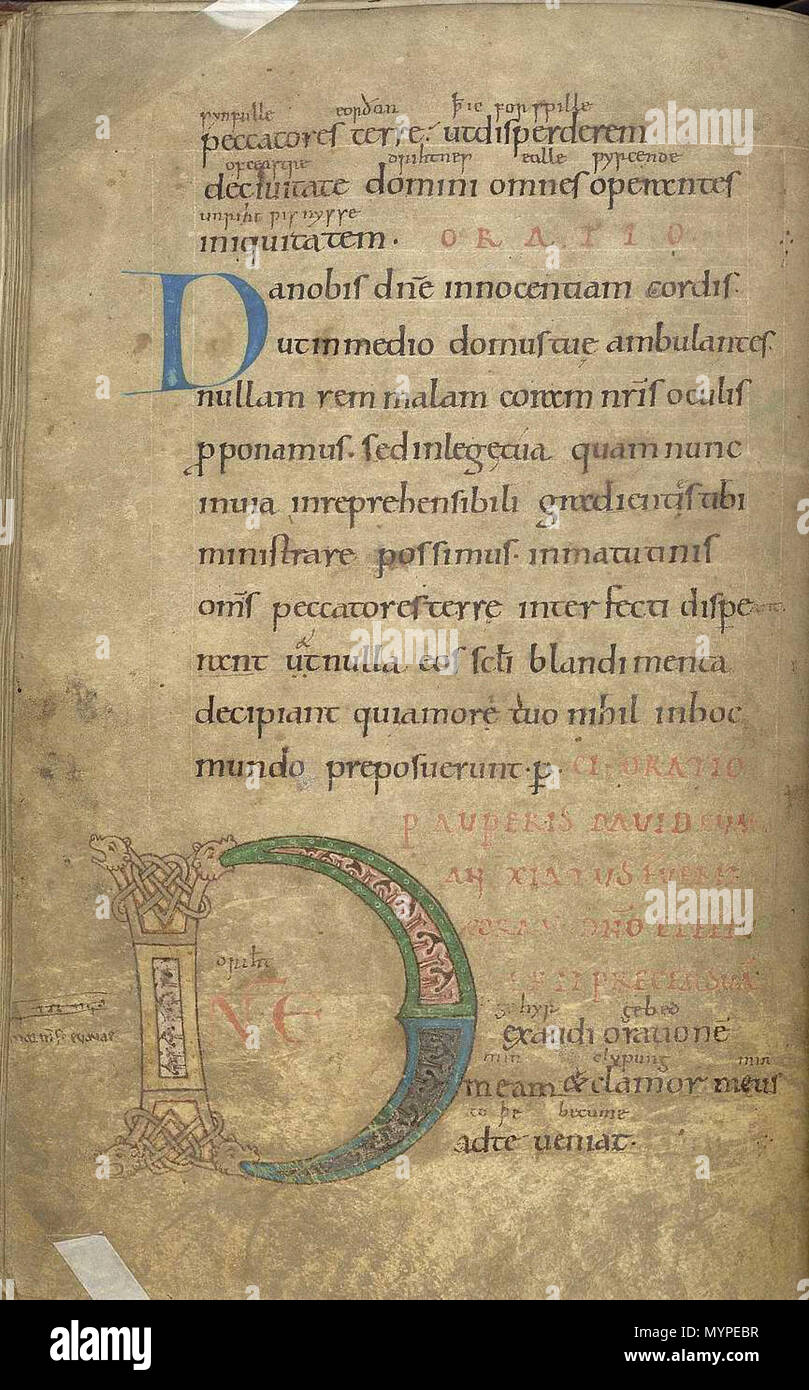 synfulle eorðan þ ie forspille
peccatores terre. ut disperderem
drihtnes ealle wyrcende
de civitate domini omnes operantes
unriht
iniquitatem. ORATIO
Da nobis dñe innocentiam cordis.
ut in medio domus tuę ambulantes
nullam rem malam coram nrīs oculis
p̱ponamus. sed in lege tua quam nunc
in via inreprehensibili gradientis tibi
ministrare possimus. in matutinis
oms̄ peccatores terrę interfecti dispe
reant ut nulla eos scłi blandimenta
decipiant qui amore tuo nihil in hoc
mundo preposuerunt. p̱. CI. ORATIO
PAUPERIS DAVID CUM
ANXIATUS FUERIT
drihť gehyr gebed
DÑE exaudi orationē
min clypung min
meam & clamor meus
to þe becume
ad te veniat.
alamy
alamy
Image ID: MYPEBR
www.alamy.com